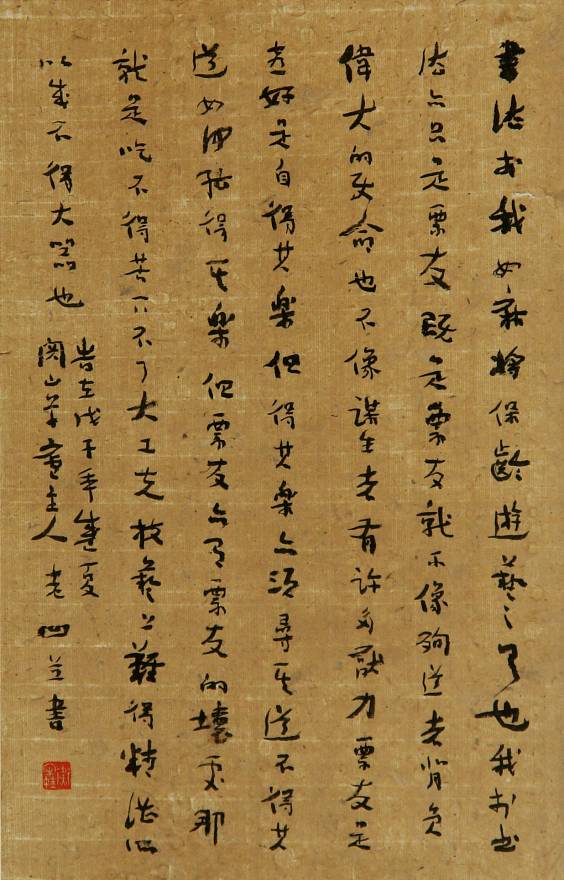 書法於我如麻將保齡遊藝之也我於書
法亦只是票友既是票友就不像殉道者背負
偉大的使命也不像謀生者有許多壓力票友是
好是自得其樂但得其樂亦須尋其道不得其
道如何能得其樂但票友亦有票友的壞處那
就是吃不得苦下不了大工夫故藝上難得精湛所
以成不得大器也
時在戊子年盛夏
山草堂主人老凹並書